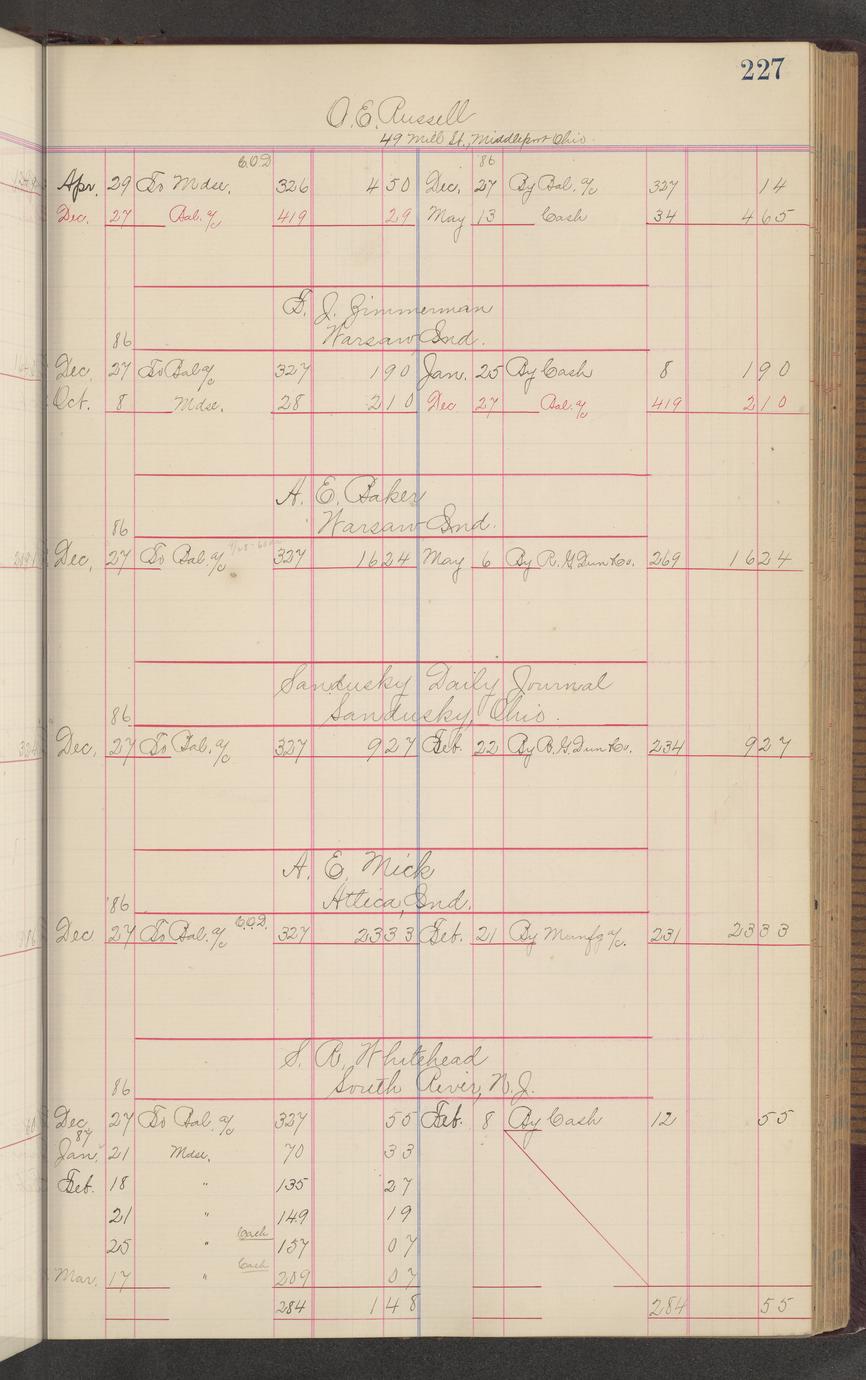 227
O. E. Russell
49 Mill St., Middleport Ohio.
C.O.D. '86
Apr. 29 To Mdse. 326 4 50 Dec. 27 By Bal. a/c 327 14
Dec. 27 Bal. a/c 419 29 May 13 Cash 34 4 65
J. Zimmerman
86 Warsaw Ind.
Dec. 27 To Bal a/c 327 1 90 Jan. 25 By Cash 8 1 90
Oct. 8 Mdse. 28 2 10 Dec 27 Bal. a/c 419 2 10
A. E. Baker
86 Warsaw Ind.
Dec. 27 To Bal. a/c 327 16 24 May 6 By R. G. Dun & Co. 269 16 24
Sandusky Daily Journal
86 Sandusky, Ohio.
Dec. 27 To Bal. a/c 327 9 27 Feb. 22 By R. G. Dun & Co. 234 9 27
A. E. Mick
'86 Attica, Ind.
Dec 27 To Bal. a/c C.O.D. 327 23 33 Feb. 21 By Manfg a/c. 231 23 33
S. R. Whitehead
86 South River, N. J.
Dec 27 To Bal. a/c 327 55 Feb. 8 By Cash 12 55
87
Jan. 21 Mdse. 70 33
Feb. 18 " 135 27
21 " 149 19
25 " Cash 157 07
Mar. 17 " Cash 209 07
284 1 48 284 55